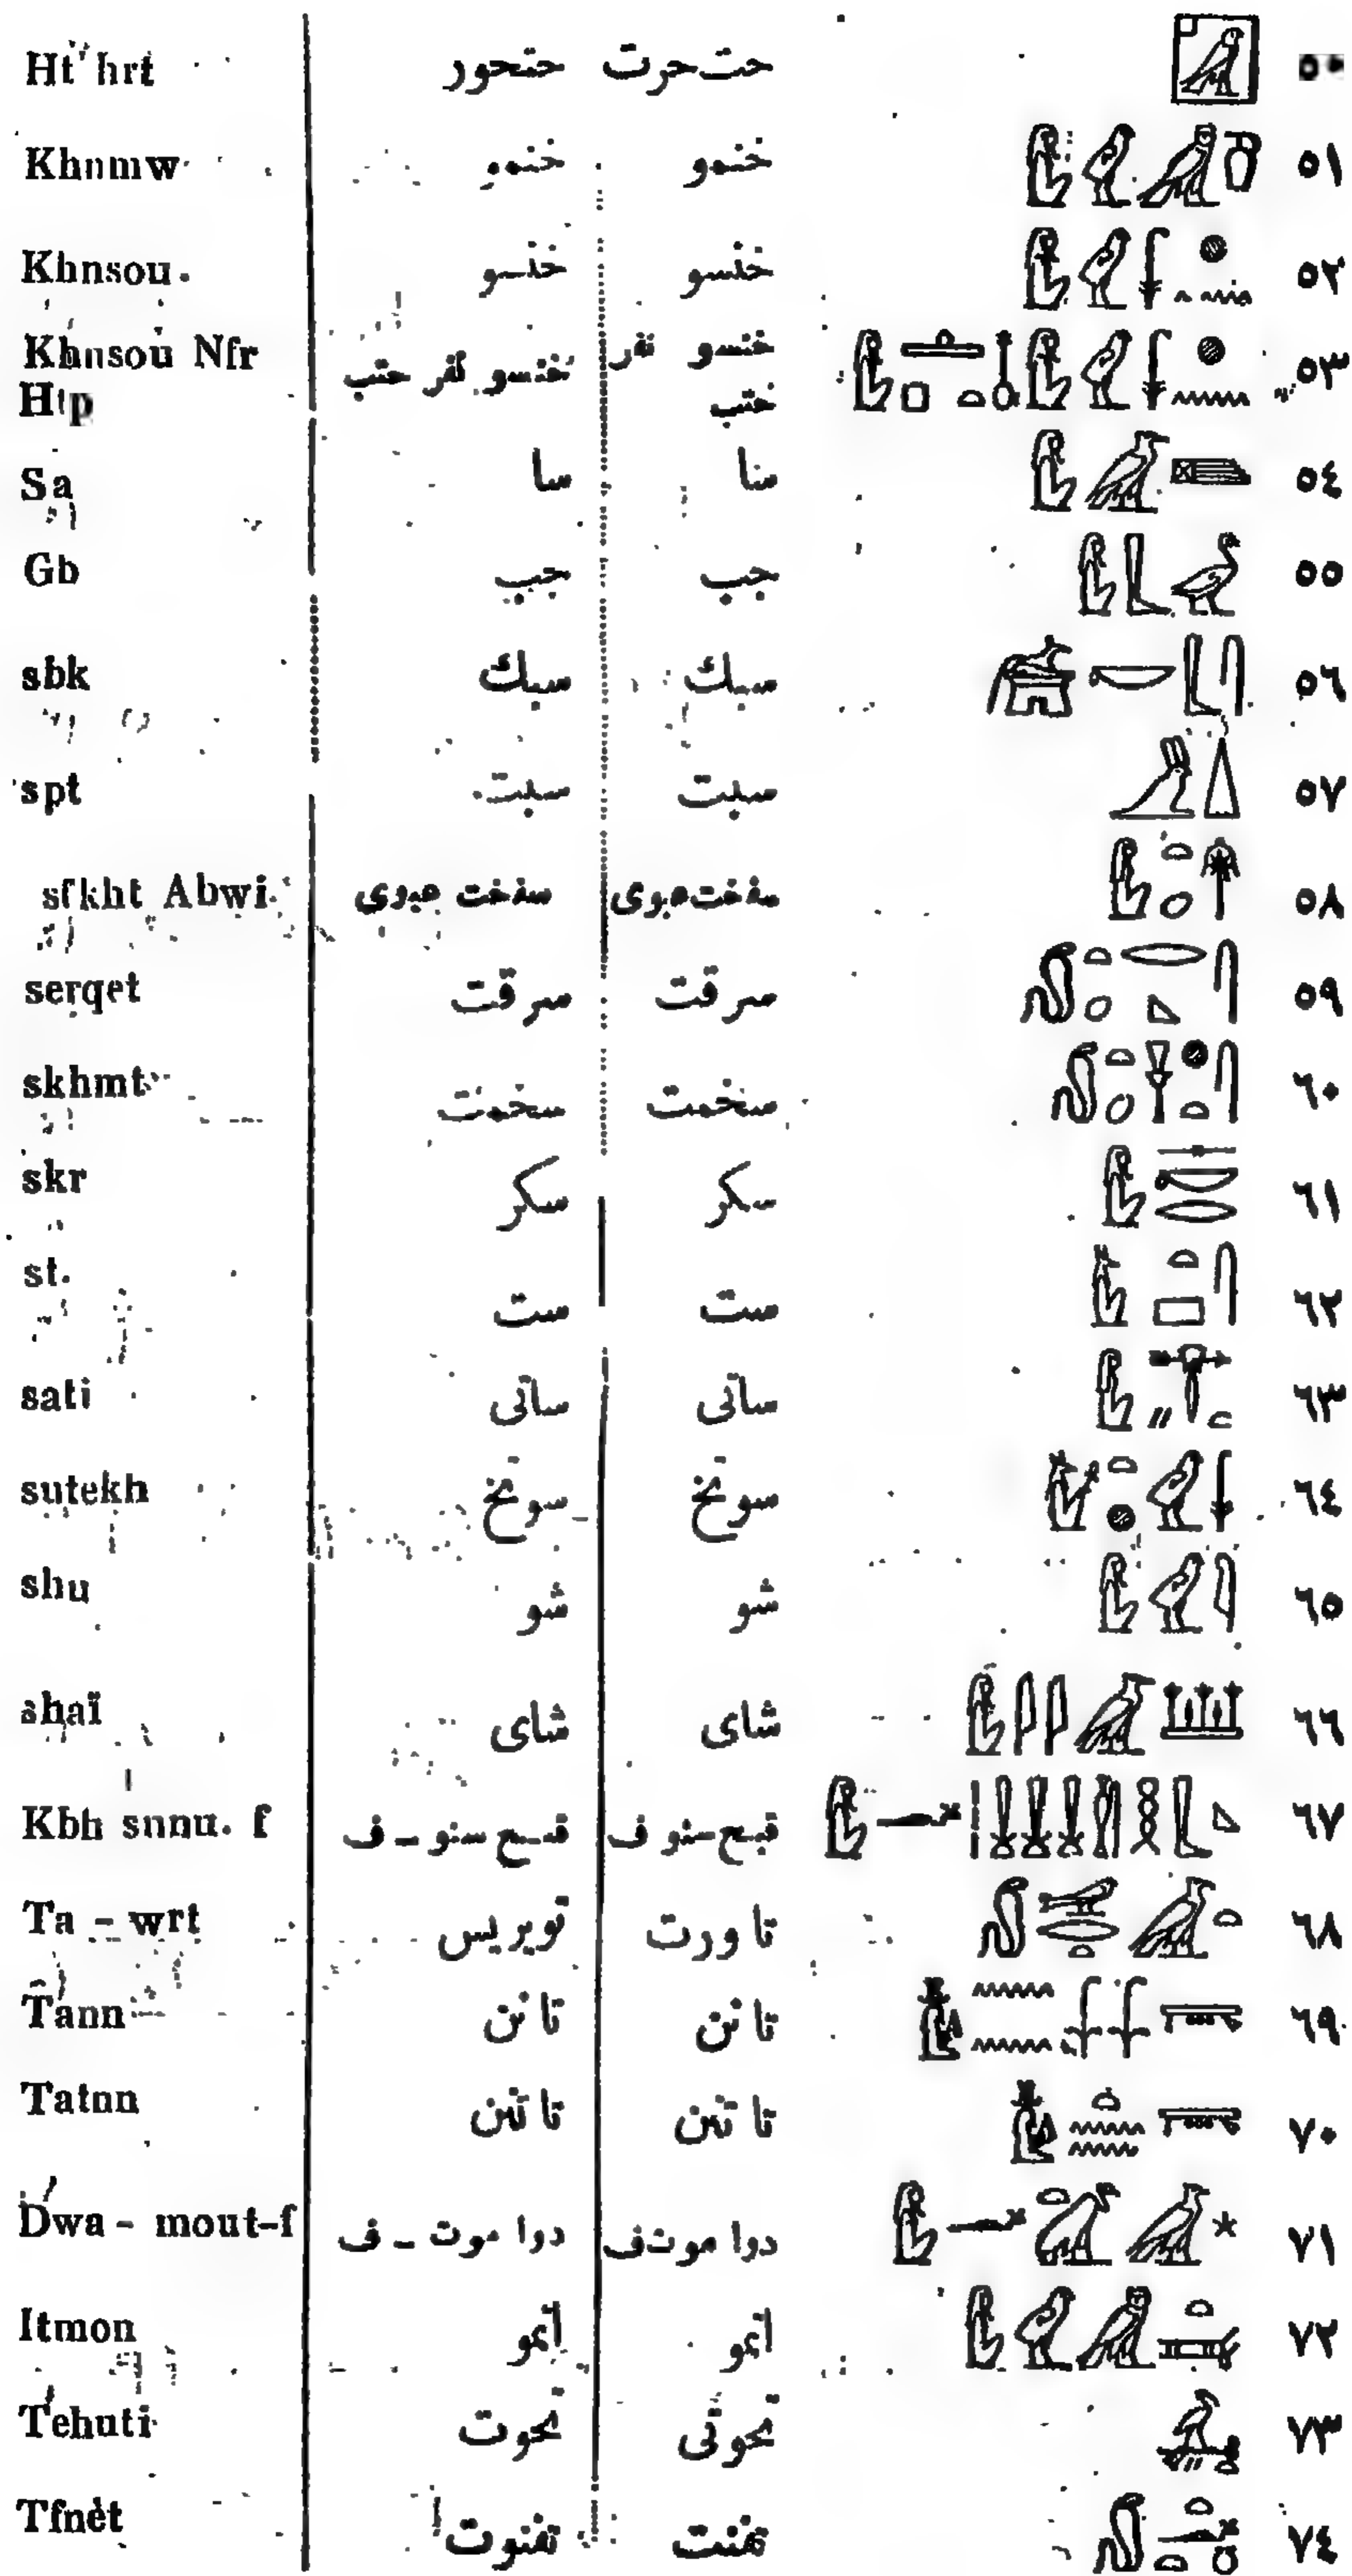 Ht'hrt حتحور حت حرت ٥٠
Khnmw خنمو خنمو ٥١
Khnsou. خنسو خنسو ٥٢
Khnsou Nfr خنسو نفر حتب خنسو نفر ٥٣
Htp حتب
Sa سا سا ٥٤
Gb جب جب ٥٥
sbk سبك سبك ٥٦
spt سبت سبت ٥٧
sfkht Abwi سفخت عبوى سفخت عبوى ٥٨
serqet سرقت سرقت ٥٩
skhmt سخمت سخمت ٦٠
skr سكر سكر ٦١
st. ست ست ٦٢
sati ساتى ساتى ٦٣
sutekh سوتخ سوتخ ٦٤
shu شو شو ٦٥
shaï شاى شاى ٦٦
Kbh snnu. f قبح سنو - ف قبح سنو ف ٦٧
Ta - wrt تويريس تا ورت ٦٨
Tann تا نن تا نن ٦٩
Tatnn تا تنن تا تنن ٧٠
Dwa - mout-f دوا موت - ف دوا موت ف ٧١
Itmon اتمو اتمو ٧٢
Tehuti تحوت تحوتى ٧٣
Tfnèt تفنوت تفنت ٧٤